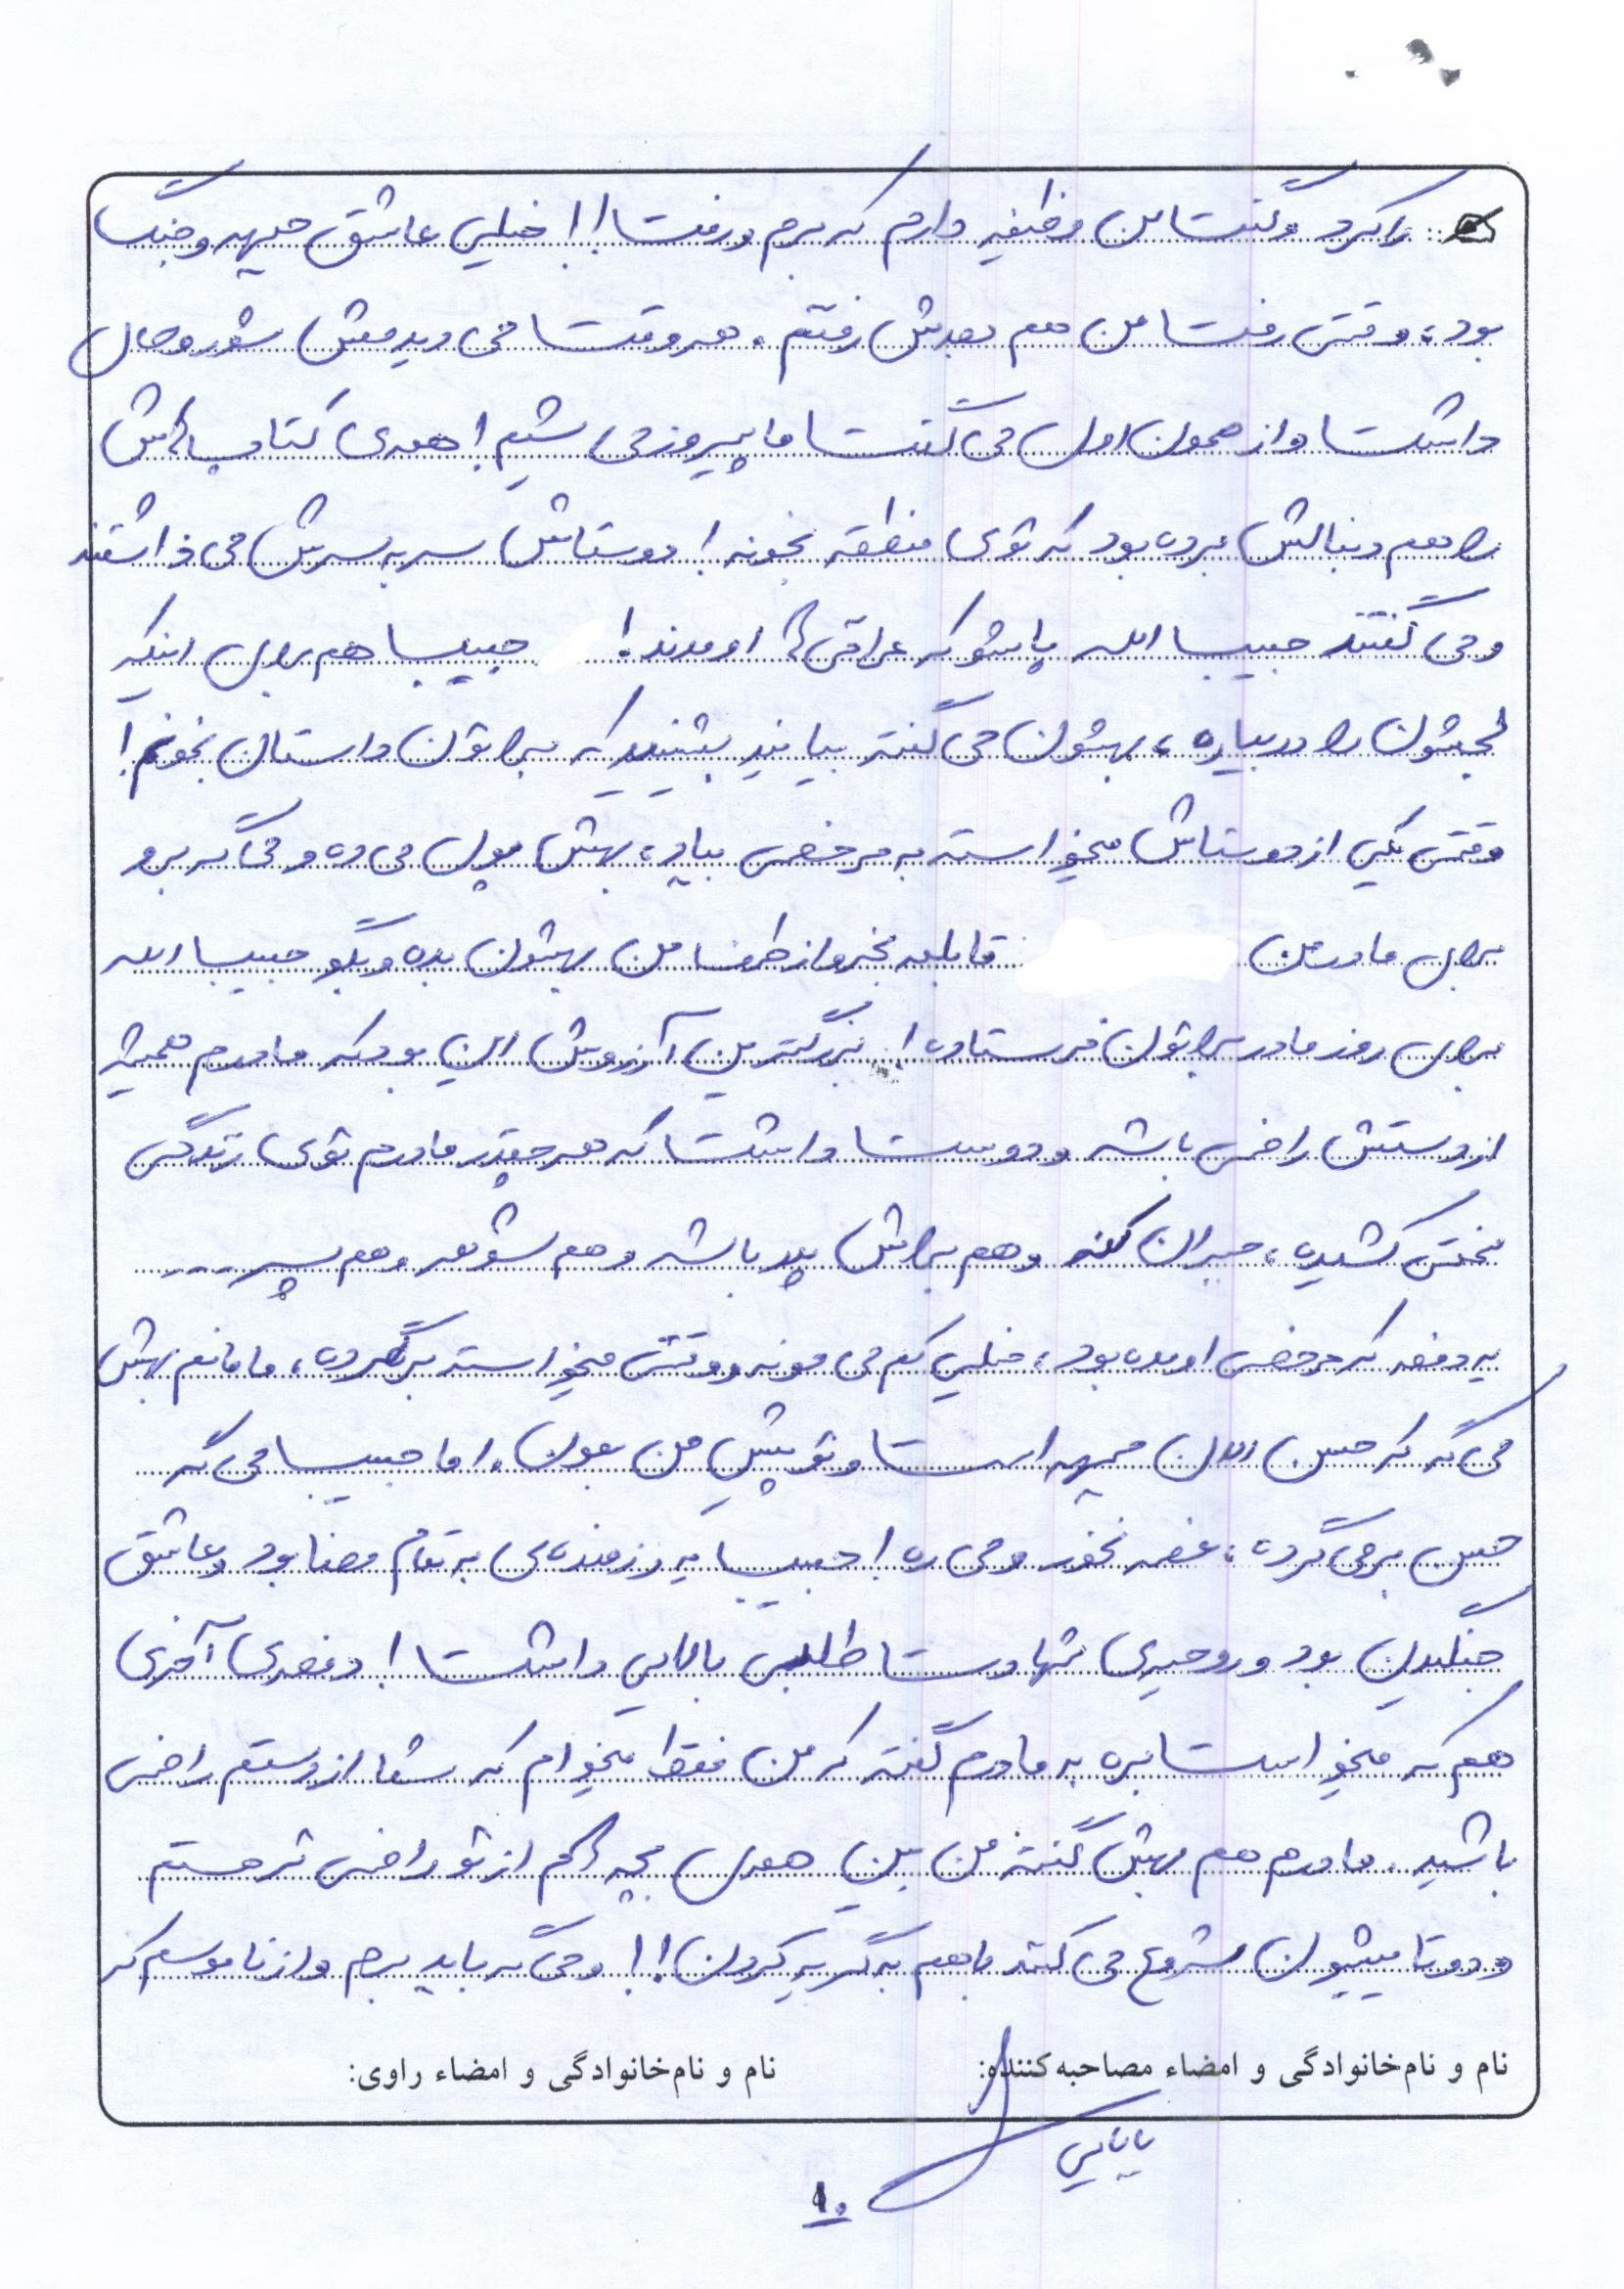 را کرد و گفت من وظیفه دارم که برم و رفت!! خیلی عاشق جبهه و جنگ
بود، وقتی رفت من هم بعدش رفتم. هر وقت می دیدمش شور و حال
داشت و از همون اول می گفت ما پیروز می شیم! همه‌ی کتاب هاش
را هم دنبالش برده بود که توی منطقه بخونه! دوستاش سر به سرش می ذاشتند
و می گفتند حبیب الله پاشو که عراقی ها اومدند! حبیب هم برای اینکه
لجشون را دربیاره، بهشون می گفته بیایید بشینید که براتون داستان بخونم!
وقتی یکی از دوستاش میخواسته به مرخصی بیاد، بهش پول می ده و می گه برو
برای مادر من قابلمه بخر و از طرف من بهشون بده و بگو حبیب الله
برای روز مادر براتون فرستاده! بزرگترین آرزوش این بود که مادرم همیشه
از دستش راضی باشه و دوست داشت که هر چقدر مادرم توی زندگی
سختی کشیده، جبران کنه و هم براش پدر باشه و هم شوهر و هم پسر....
یه دفعه که مرخصی اومده بود، خیلی کم می مونه و وقتی میخواسته برگرده، مامانم بهش
می گه که حسن الان جبهه است و تو پیش من بمون. اما حبیب می گه
حسن برمی گرده، غصه نخور و می ره! حبیب یه رزمنده‌ی به تمام معنا بود و عاشق
جنگیدن بود و روحیه‌ی شهادت طلبی بالایی داشت! دفعه‌ی آخری
هم که میخواست بره به مادرم گفته که من فقط میخوام که شما از دستم راضی
باشید. مادرم هم بهش گفته من بین همه‌ی بچه هام از تو راضی تر هستم
و دوتاییشون شروع می کنند باهم به گریه کردن!! و می گه باید برم و از ناموسم که
نام و نام‌خانوادگی و امضاء مصاحبه‌کننده: نام و نام‌خانوادگی و امضاء راوی:
بابایی
۱۰